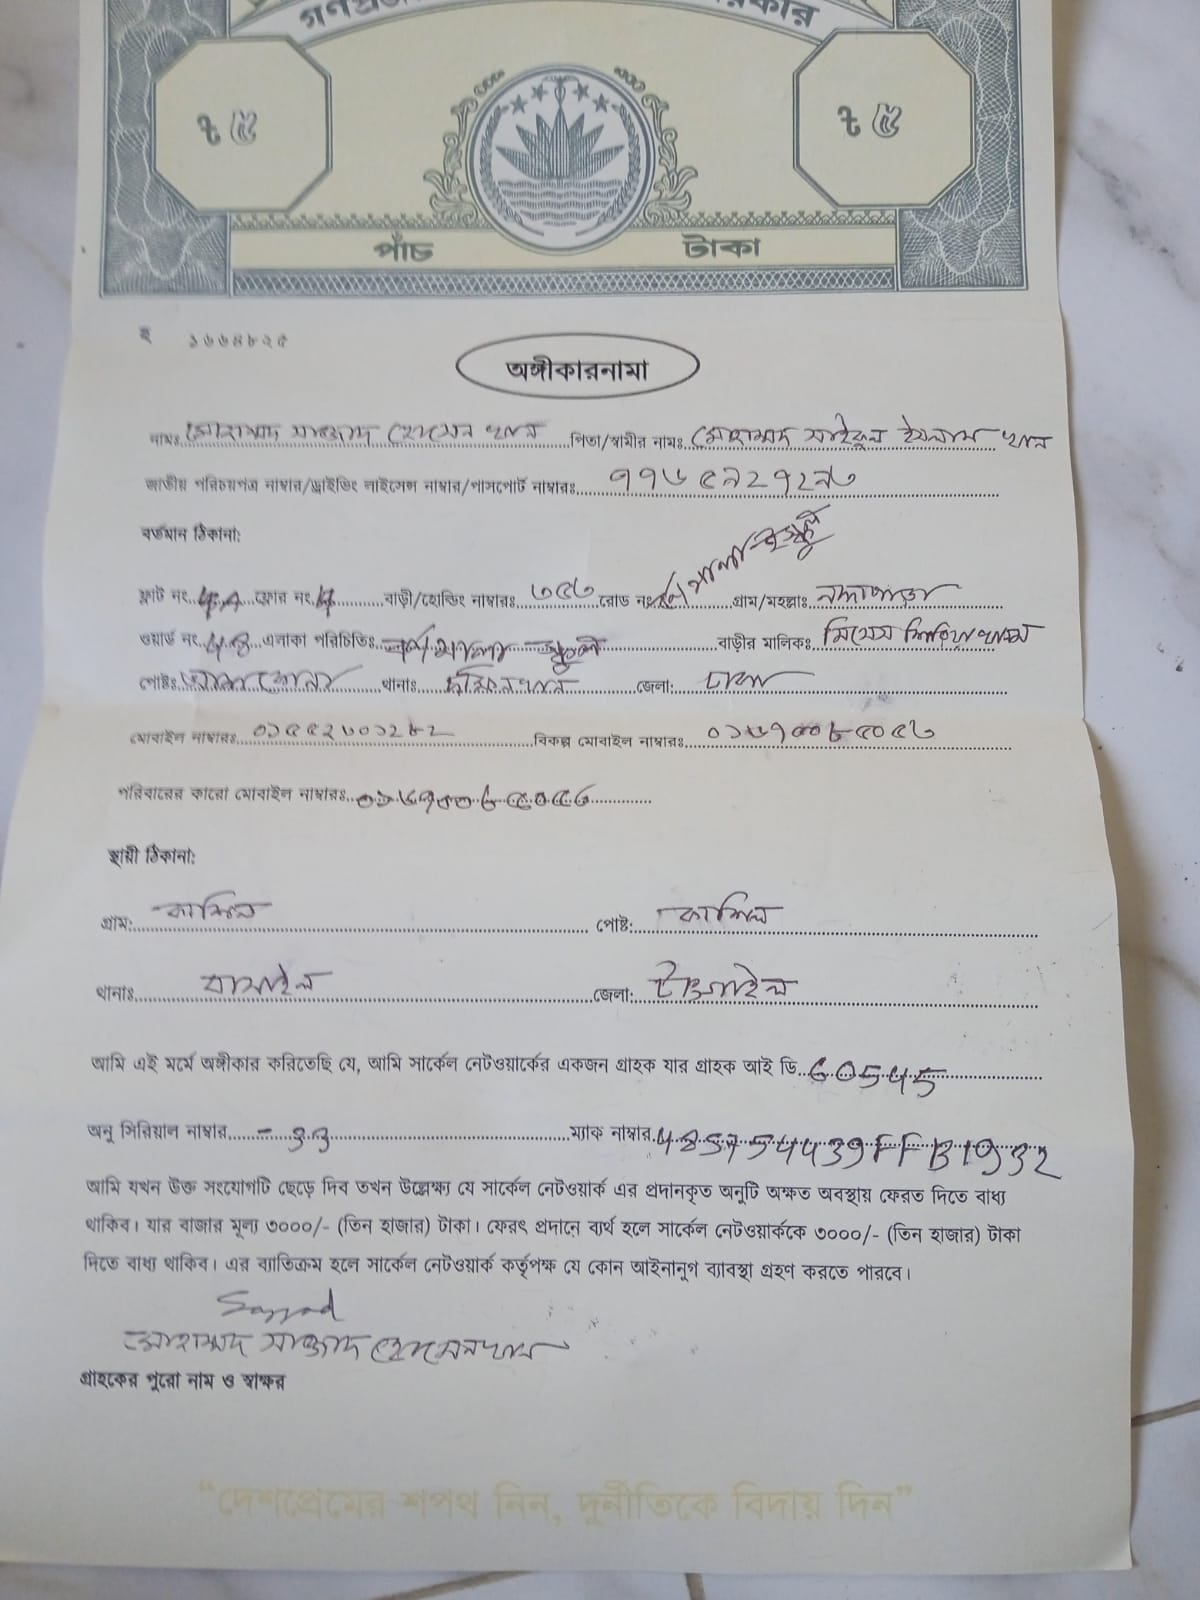 ৳ ৫
৳ ৫
পাঁচ টাকা
হ ১৬৬৪৮২৫
অঙ্গীকারনামা
নামঃ মোহাম্মদ সাজ্জাদ হোসেন খান পিতা/স্বামীর নামঃ মোহাম্মদ সাইফুল ইসলাম খান
জাতীয় পরিচয়পত্র নাম্বার/ড্রাইভিং লাইসেন্স নাম্বার/পাসপোর্ট নাম্বারঃ
বর্তমান ঠিকানা:
ফ্লাট নং 4A ফ্লোর নং 4 বাড়ী/হোল্ডিং নাম্বারঃ ৩৫৩ রোড নংঃ গ্রাম/মহল্লাঃ নদ্দাপাড়া
ওয়ার্ড নং এলাকা পরিচিতিঃ বর্ণমালা স্কুল বাড়ীর মালিকঃ
পোষ্টঃ থানাঃ দক্ষিনখান জেলা: ঢাকা
মোবাইল নাম্বারঃ ০১৫৫২৩০১২৮২ বিকল্প মোবাইল নাম্বারঃ
পরিবারের কারো মোবাইল নাম্বারঃ
স্থায়ী ঠিকানা:
গ্রাম: কাশিল পোষ্ট: কাশিল
থানাঃ বাসাইল জেলা: টাঙ্গাইল
আমি এই মর্মে অঙ্গীকার করিতেছি যে, আমি সার্কেল নেটওয়ার্কের একজন গ্রাহক যার গ্রাহক আই ডি 60545
অনু সিরিয়াল নাম্বার - 33 ম্যাক নাম্বার
আমি যখন উক্ত সংযোগটি ছেড়ে দিব তখন উল্লেক্ষ্য যে সার্কেল নেটওয়ার্ক এর প্রদানকৃত অনুটি অক্ষত অবস্থায় ফেরত দিতে বাধ্য
থাকিব। যার বাজার মূল্য ৩০০০/- (তিন হাজার) টাকা। ফেরৎ প্রদানে ব্যর্থ হলে সার্কেল নেটওয়ার্ককে ৩০০০/- (তিন হাজার) টাকা
দিতে বাধ্য থাকিব। এর ব্যতিক্রম হলে সার্কেল নেটওয়ার্ক কর্তৃপক্ষ যে কোন আইনানুগ ব্যাবস্থা গ্রহণ করতে পারবে।
Sajjad
মোহাম্মদ সাজ্জাদ হোসেন খান
গ্রাহকের পুরো নাম ও স্বাক্ষর
“দেশপ্রেমের শপথ নিন, দুর্নীতিকে বিদায় দিন”